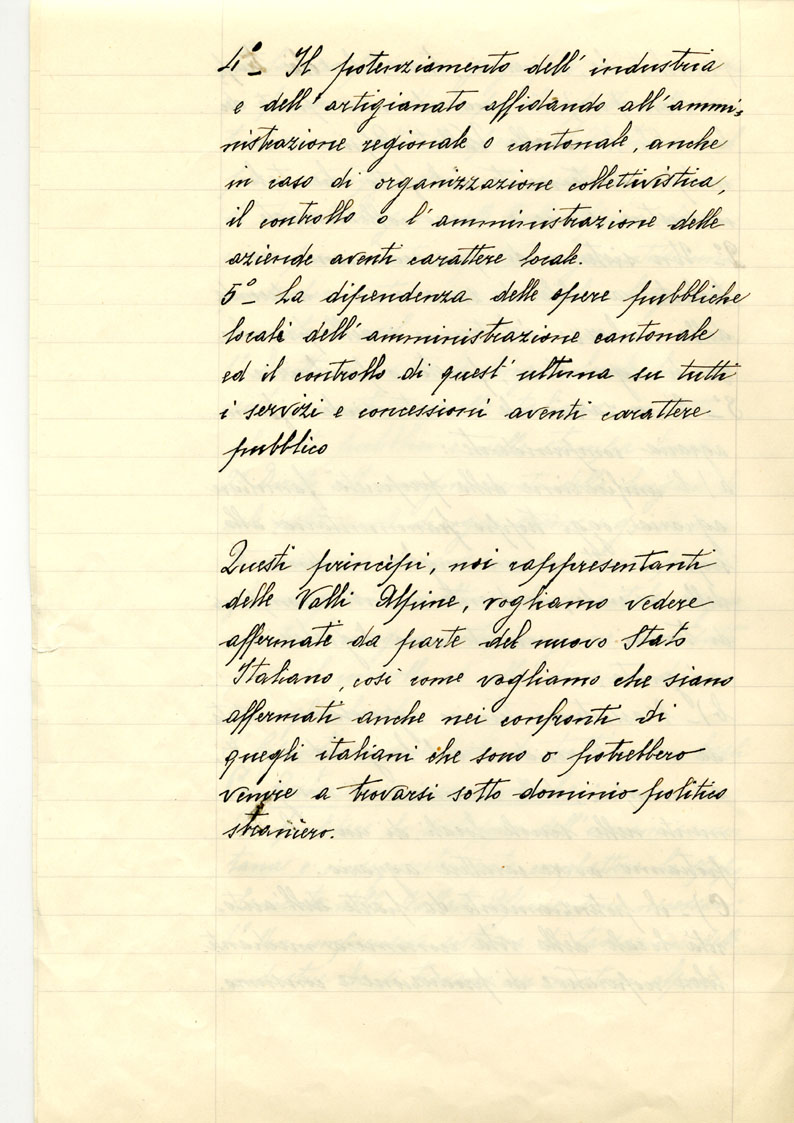 4º- Il potenziamento dell'industria
e dell'artigianato affidando all'ammi-
nistrazione regionale o cantonale, anche
in caso di organizzazione collettivistica,
il controllo o l'amministrazione delle
aziende aventi carattere locale.
5º- La dipendenza delle opere pubbliche
locali dell'amministrazione cantonale
ed il controllo di quest'ultima su tutti
i servizi e concessioni aventi carattere
pubblico
Questi principi, noi rappresentanti
delle Valli Alpine, vogliamo vedere
affermati da parte del nuovo Stato
Italiano, così come vogliamo che siano
affermati anche nei confronti di
quegli italiani che sono o potrebbero
venire a trovarsi sotto dominio politico
straniero.